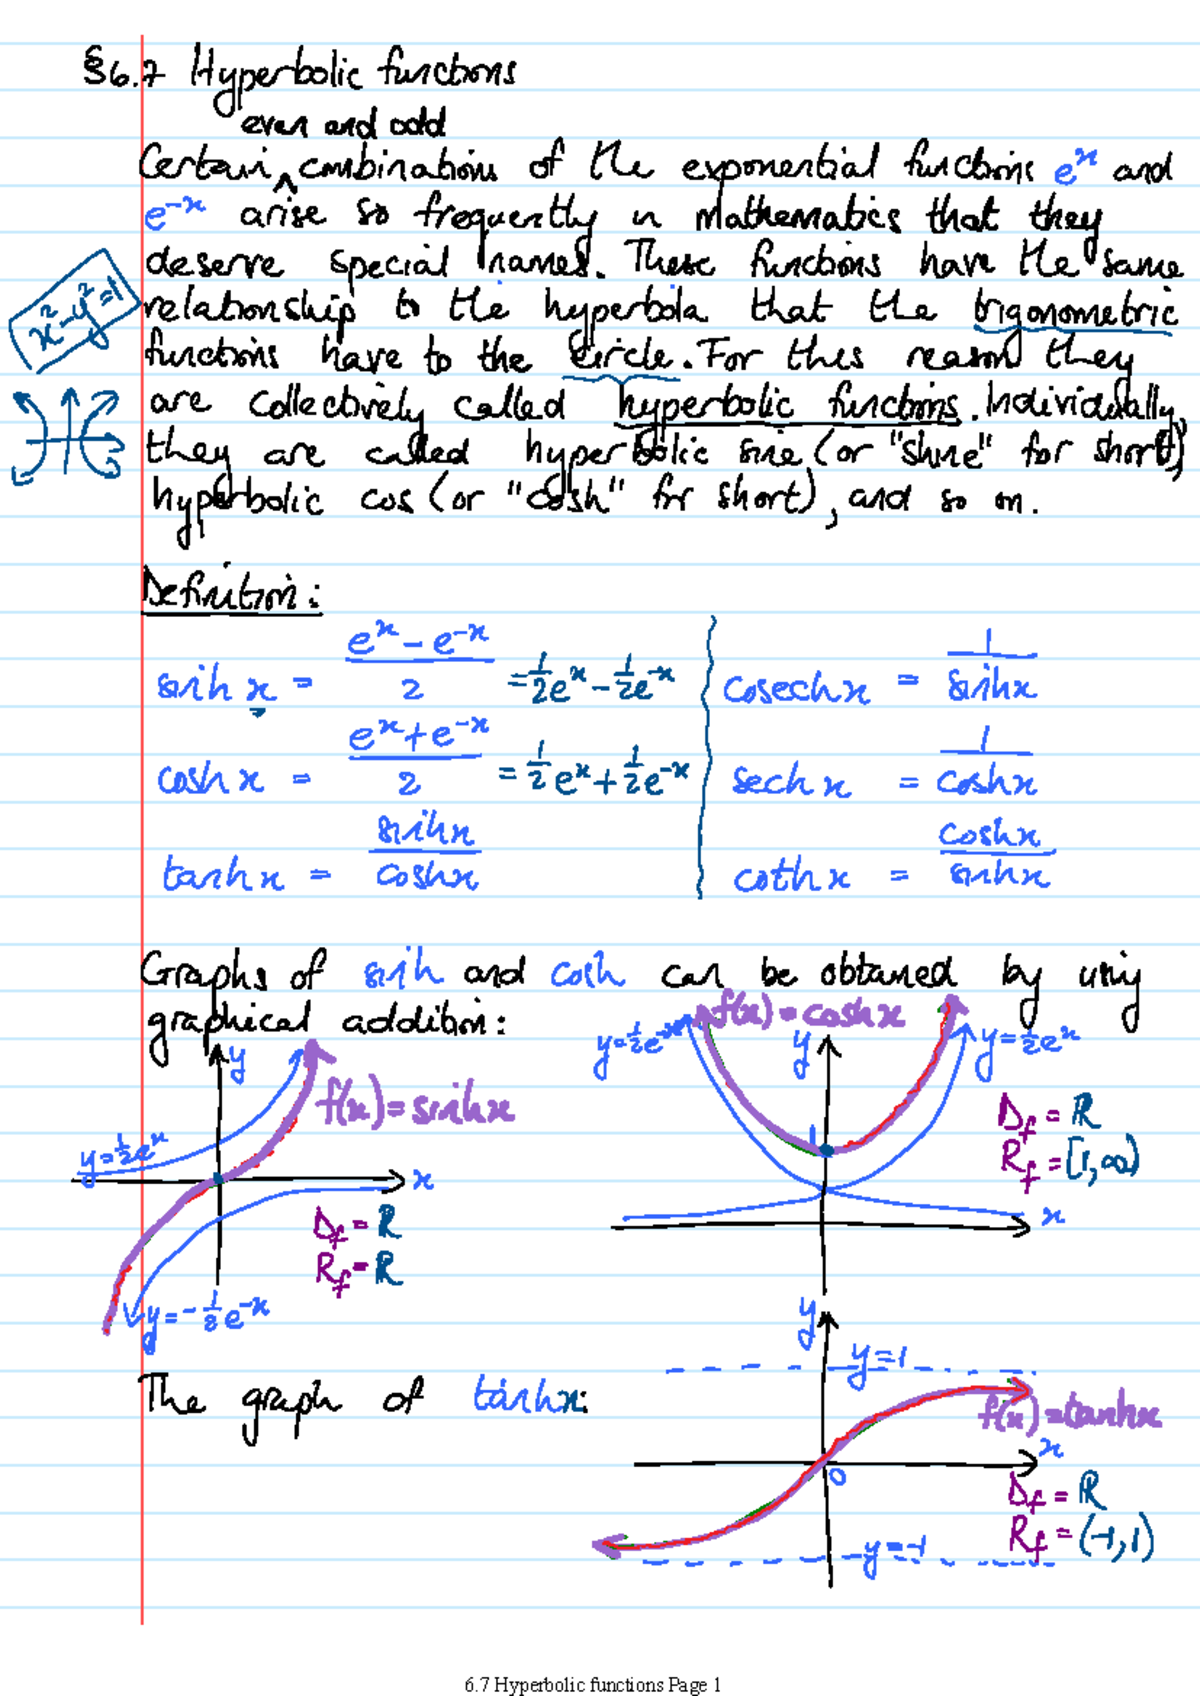 §6.7 Hyperbolic functions
even and odd
Certain ^ combinations of the exponential functions eˣ and
e⁻ˣ arise so frequently in mathematics that they
deserve special names. These functions have the same
relationship to the hyperbola that the trigonometric
x²-y²=1
functions have to the circle. For this reason they
are collectively called hyperbolic functions. Individually,
they are called hyperbolic sine (or "shine" for short),
hyperbolic cos (or "cosh" for short), and so on.
Definition:
sinh x = (eˣ - e⁻ˣ)/2 = ½eˣ - ½e⁻ˣ
cosech x = 1/sinhx
cosh x = (eˣ + e⁻ˣ)/2 = ½eˣ + ½e⁻ˣ
sech x = 1/coshx
tanh x = sinhx/coshx
coth x = coshx/sinhx
Graphs of sinh and cosh can be obtained by using
graphical addition:
y
f(x)=sinhx
y=½eˣ
x
D_f = ℝ
R_f = ℝ
y=-½e⁻ˣ
f(x)=coshx
y=½e⁻ˣ
y
y=½eˣ
1
D_f = ℝ
R_f = [1,∞)
x
The graph of tanhx:
y
y=1
f(x)=tanhx
x
0
D_f = ℝ
R_f = (-1,1)
y=-1
6.7 Hyperbolic functions Page 1